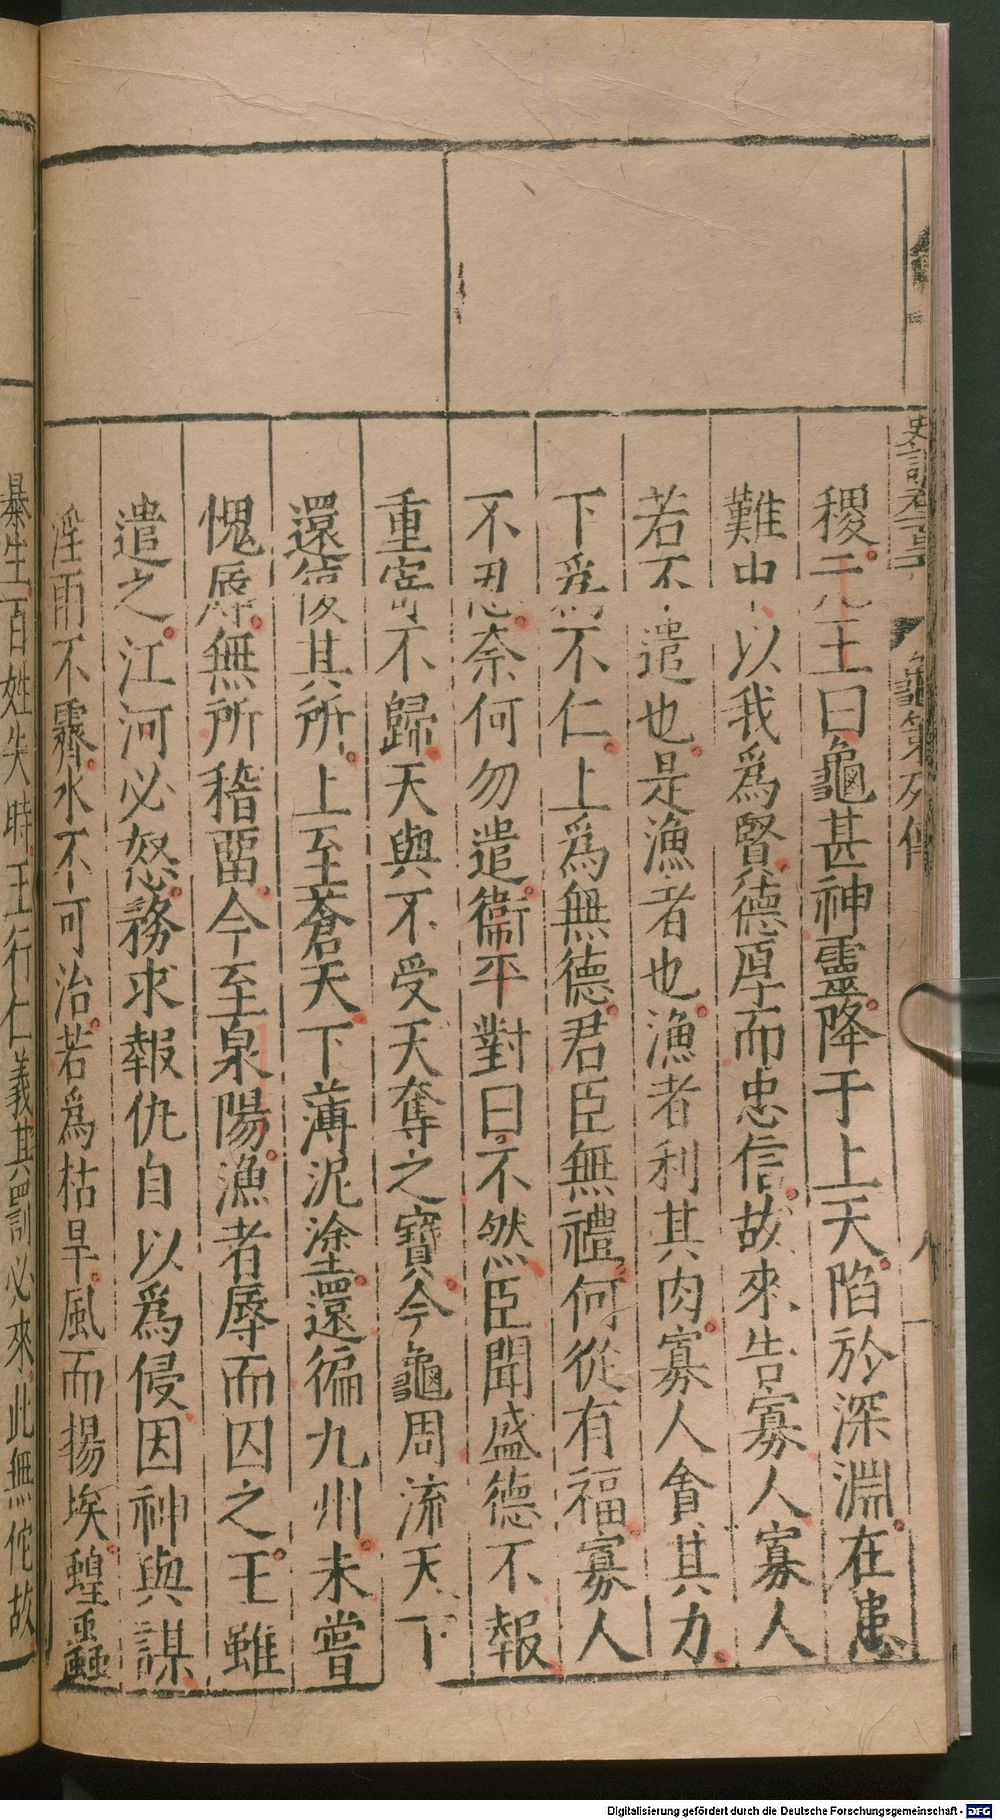 史記卷一百二 龜策列傳 八
稷元王曰龜甚神靈降于上天陷於深淵在患
難中以我爲賢德厚而忠信故來告寡人寡人
若不遣也是漁者也漁者利其肉寡人貪其力
下爲不仁上爲無德君臣無禮何從有福寡人
不忍奈何勿遣衞平對曰不然臣聞盛德不報
重寄不歸天與不受天奪之寶今龜周流天下
還復其所上至蒼天下薄泥塗還徧九州未嘗
愧辱無所稽畱今至泉陽漁者辱而囚之王雖
遣之江河必怒務求報仇自以爲侵因神與謀
淫雨不霽水不可治若爲枯旱風而揚埃蝗蟲
暴生百姓失時王行仁義其罰必來此無佗故
Digitalisierung gefördert durch die Deutsche Forschungsgemeinschaft - DFG